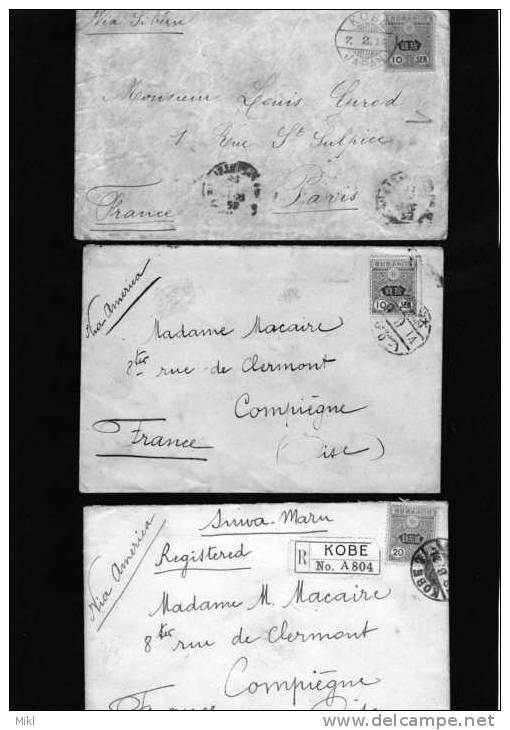 Via Sibérie
KOBE
7. 2. 14
JAPAN
10 SEN
Monsieur Louis Curod
1 Rue St Sulpice
Paris
France
Via America
10 SEN
Madame Macaire
8ter rue de Clermont
Compiègne
France
(Oise)
Suwa-Maru
Registered
Via America
R KOBE
No. A 804
20
KOBE
Madame M. Macaire
8ter rue de Clermont
Compiègne
France
Oise
Mikl
delcampe.net